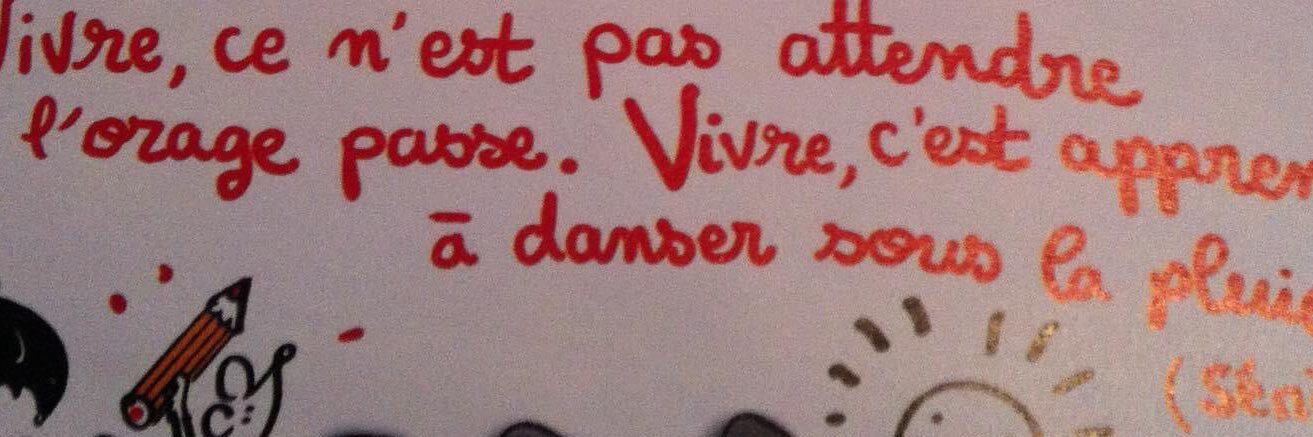 Vivre, ce n'est pas attendre
l'orage passe. Vivre, c'est appren
ā danser sous la pluie
(Sén